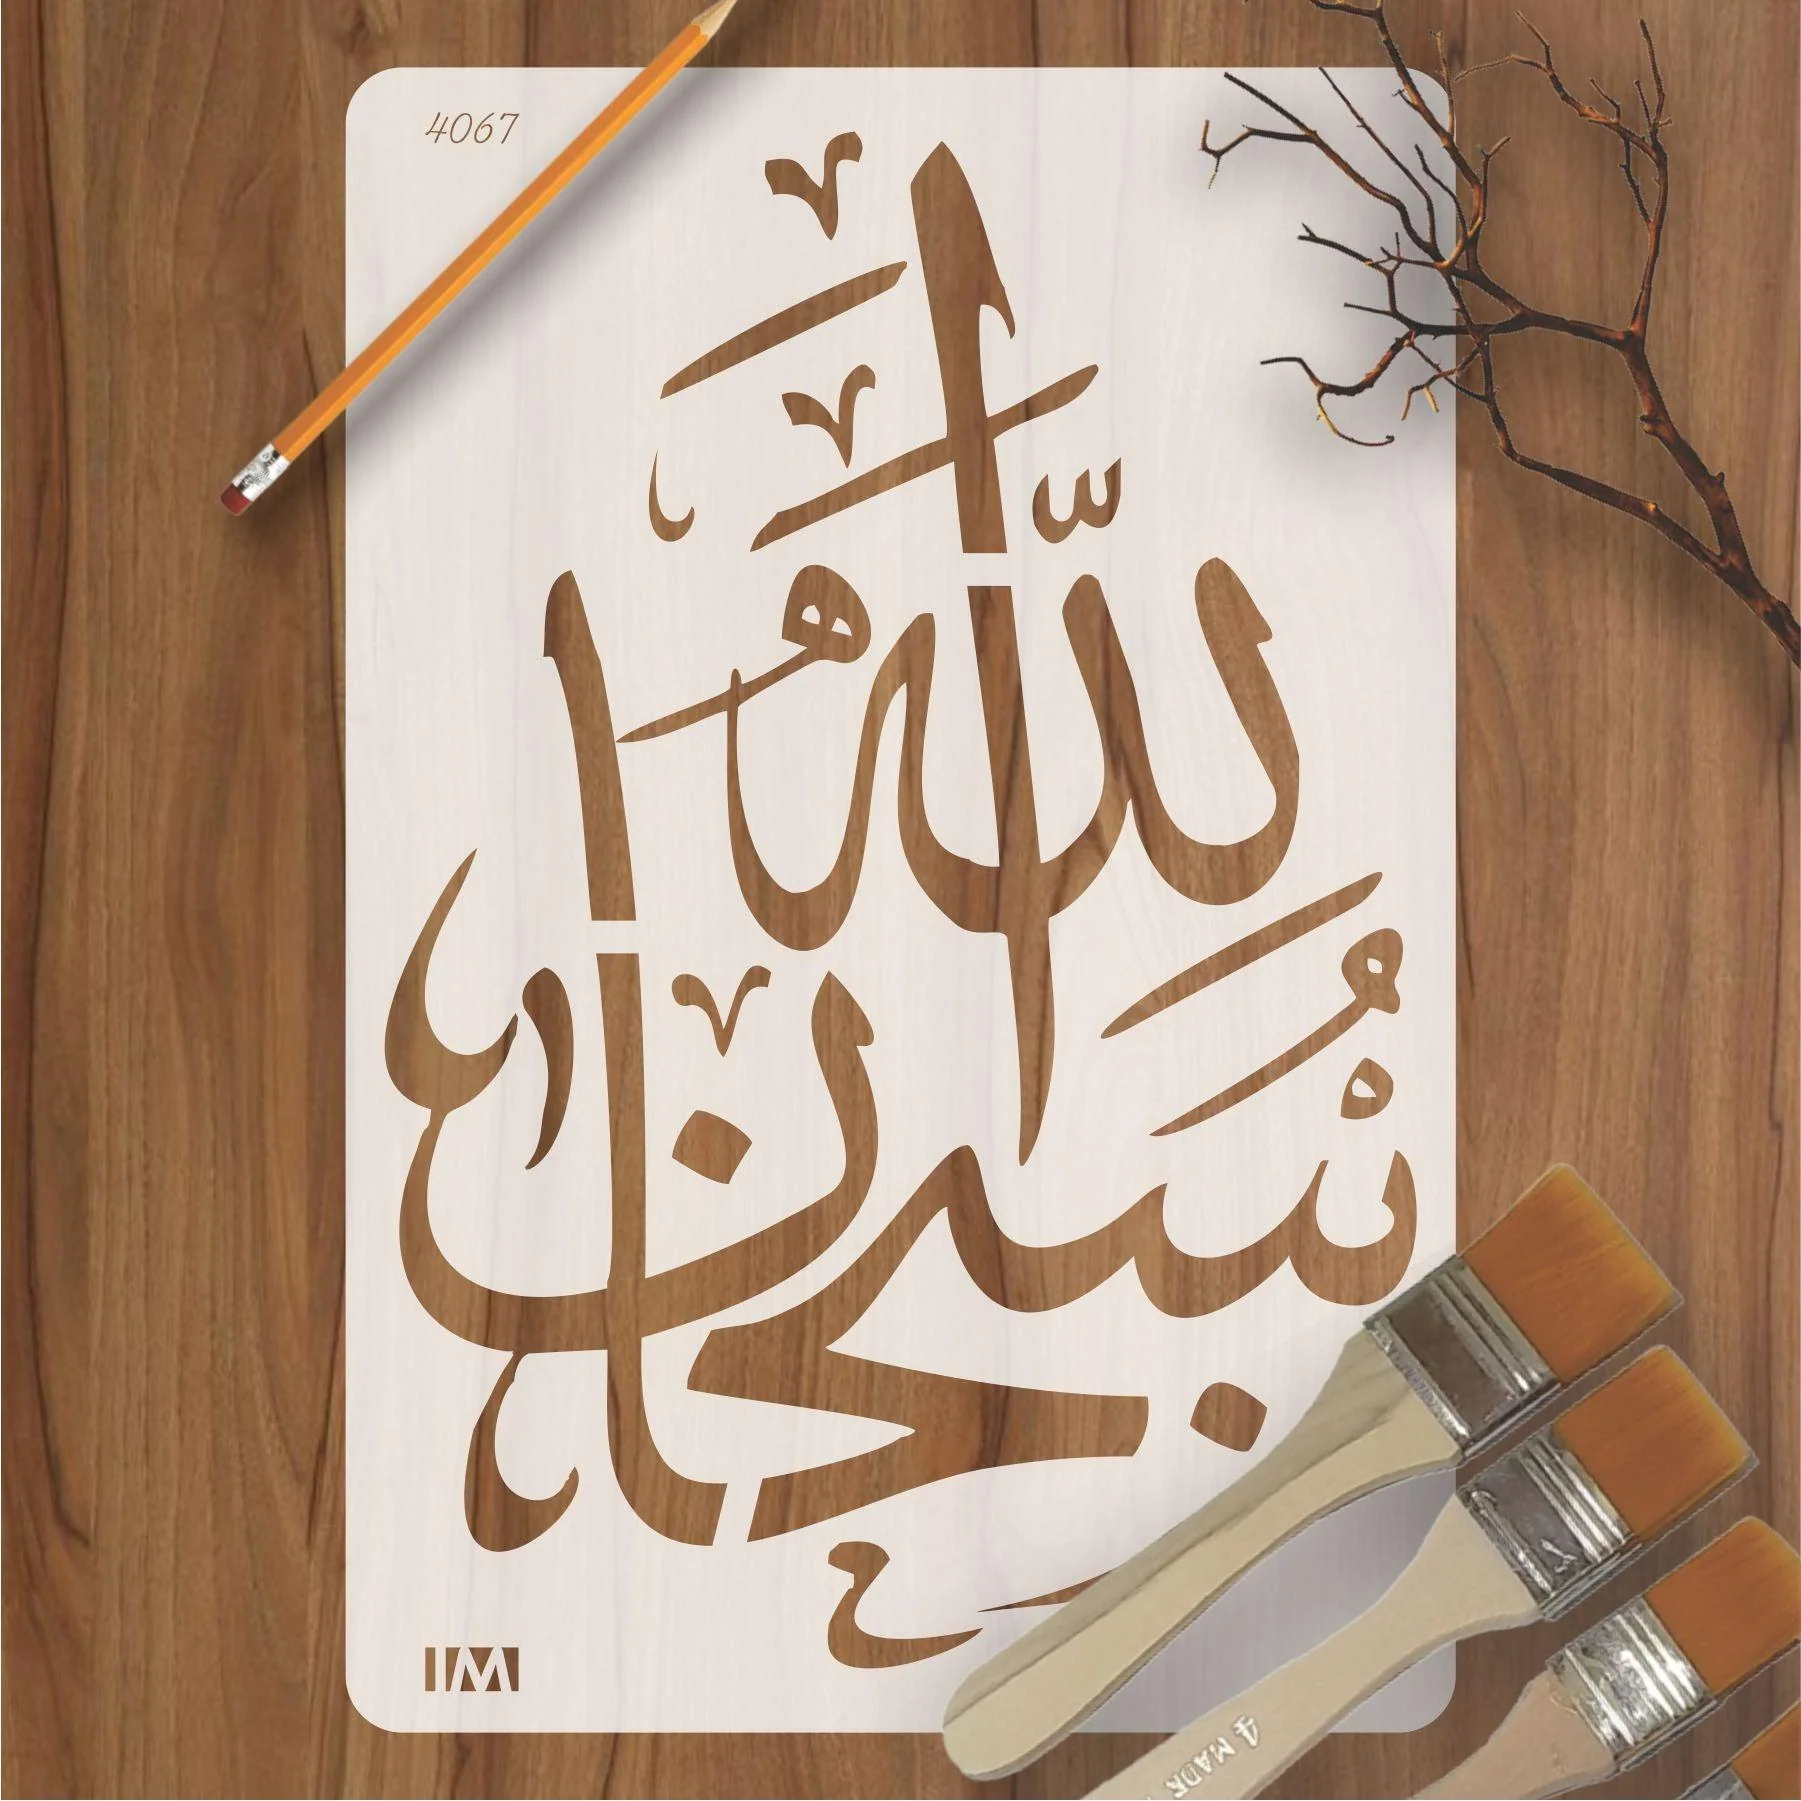 4067
سُبْحَانَ اللّٰه
IM
4 MADE